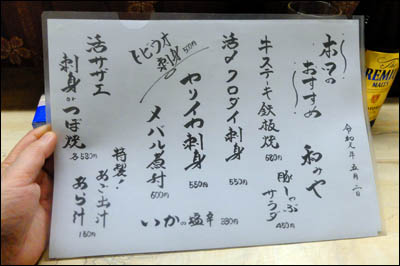 本日の
おすすめ
和みや
令和元年五月二日
牛ステーキ鉄板焼
580円
豚しゃぶ
サラダ
450円
活〆クロダイ刺身
550円
ヤリイカ刺身
550円
いかの塩辛 380円
トビウオ
刺身
50円
メバル煮付
600円
特製!
あご出汁
あら汁
150円
活サザエ
刺身orつぼ焼
各580円
PREMIUM
MALT'S